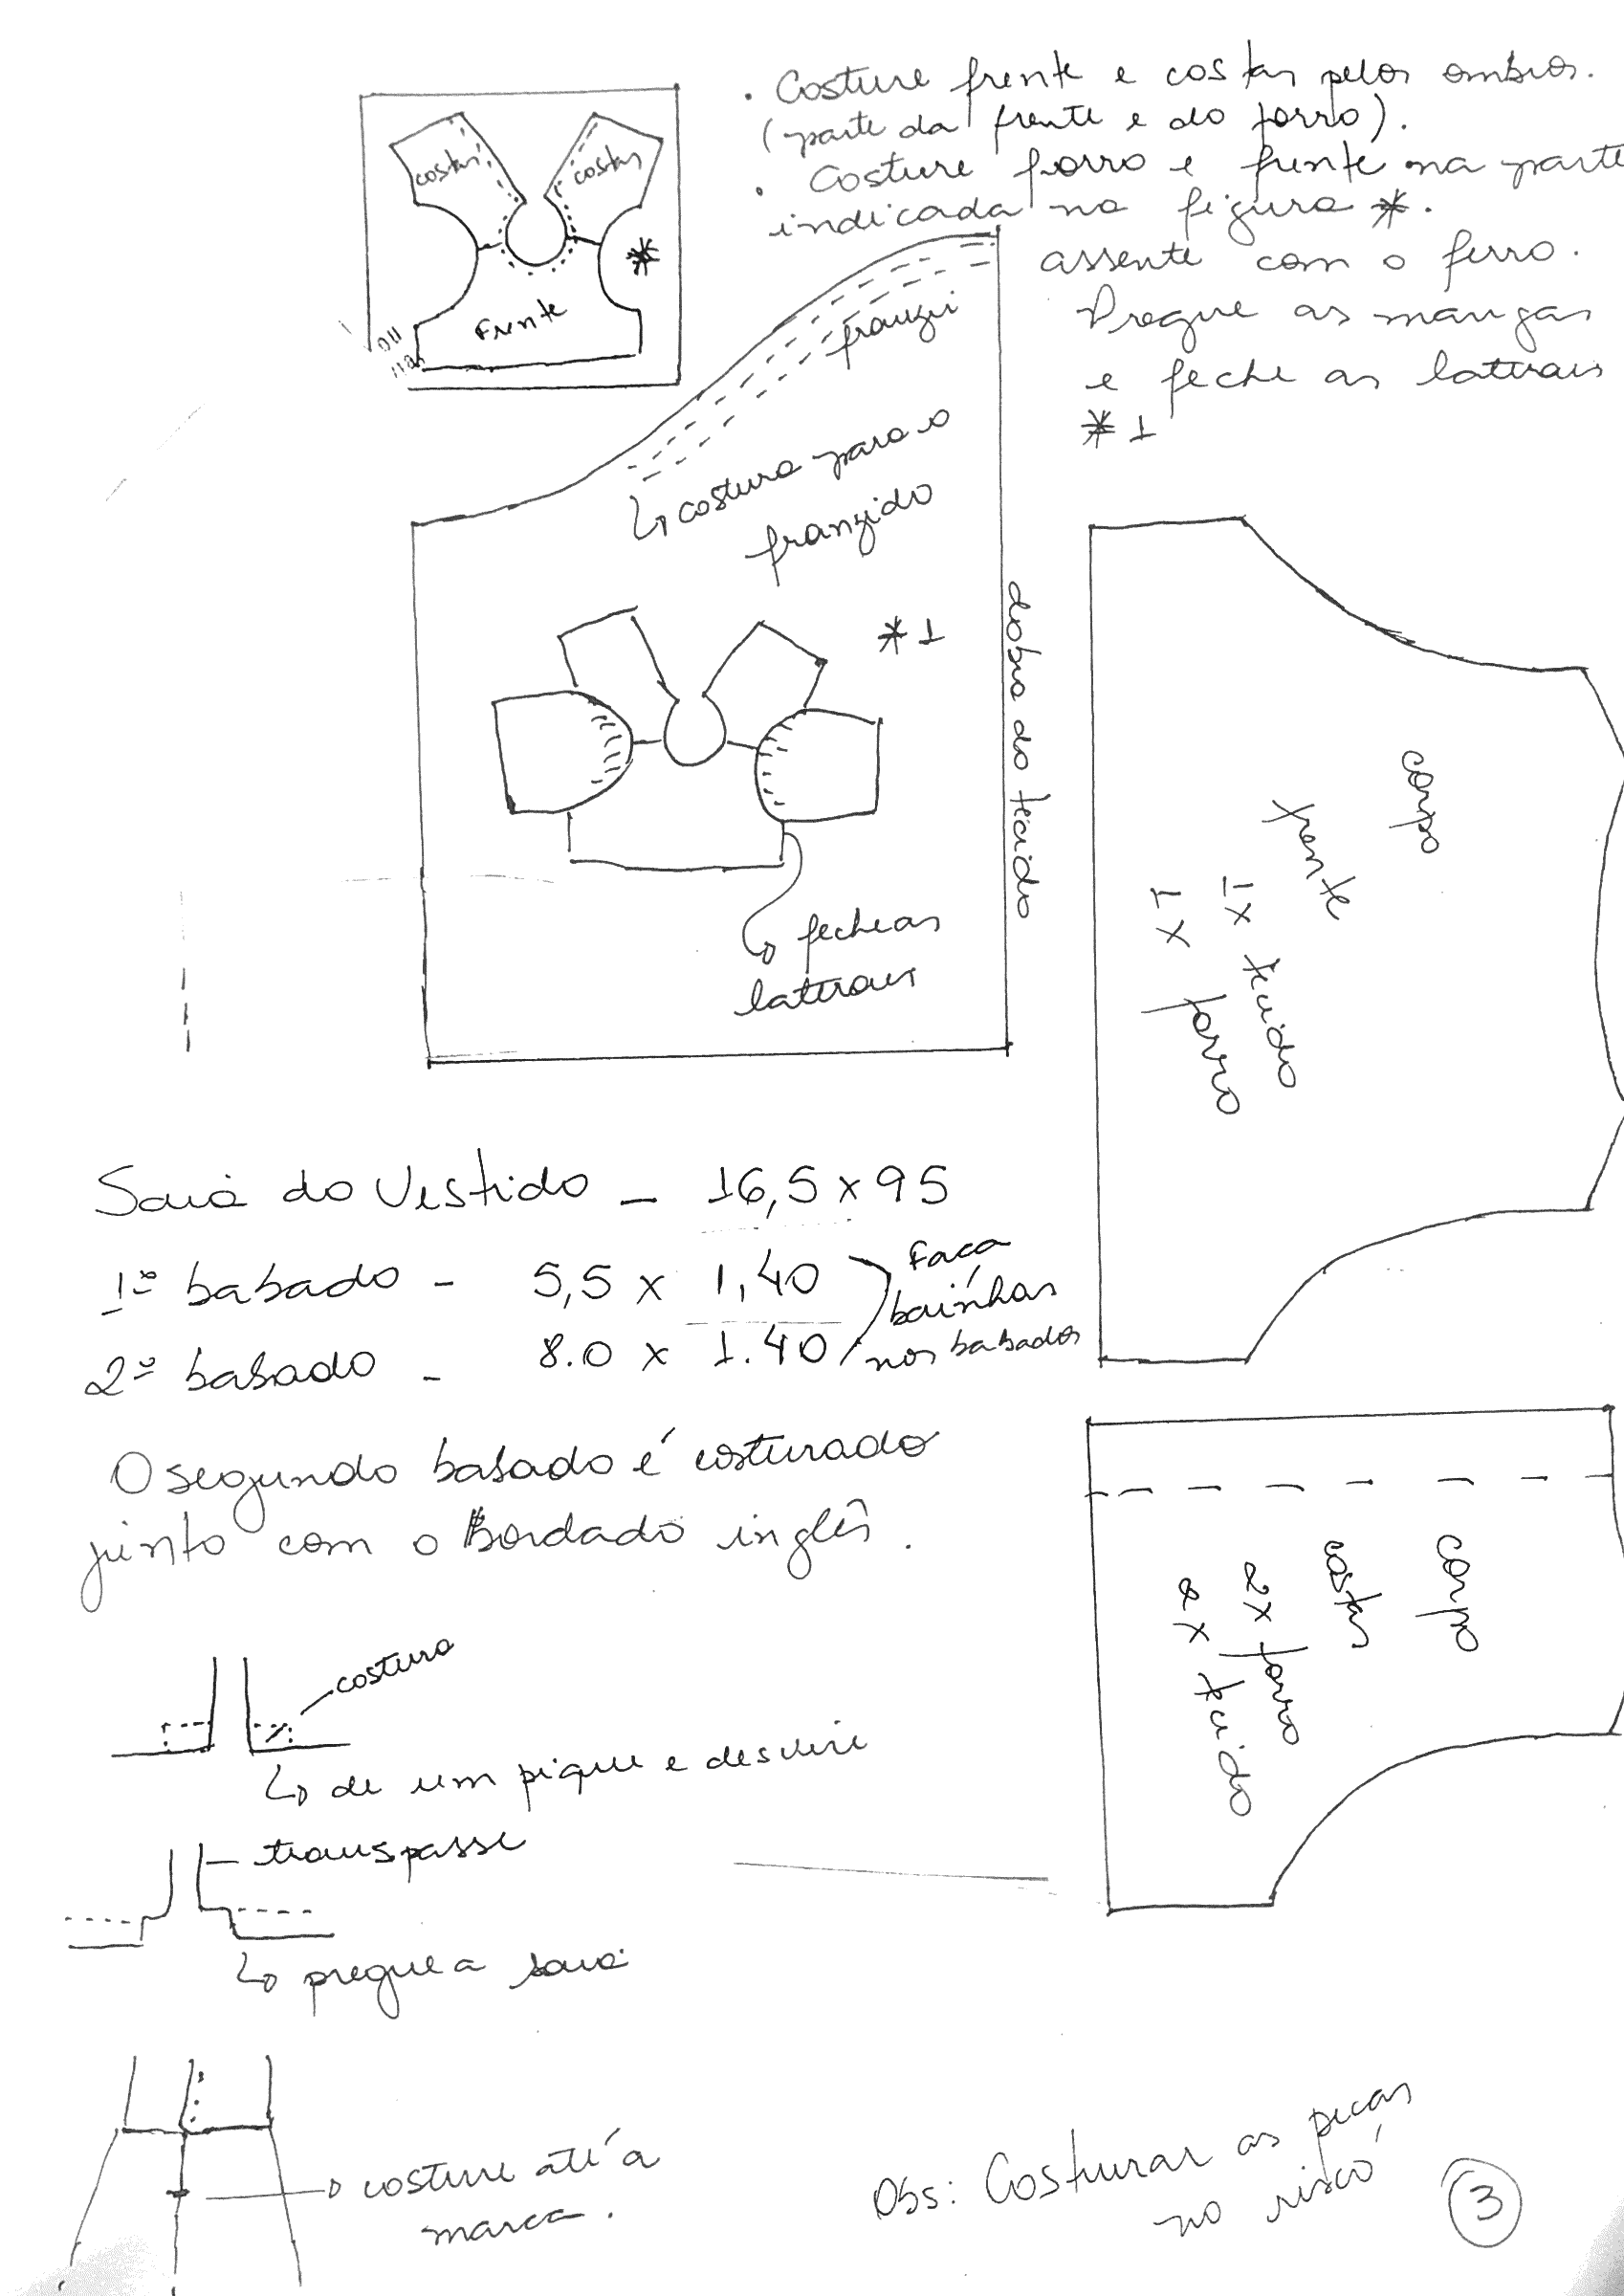 . Costure frente e costas pelos ombros.
(parte da frente e do forro).
. Costure forro e frente na parte
indicada na figura *.
assente com o ferro.
Pregue as mangas
e feche as laterais
*1
costas costas
*
Frente
franzir
↳ costura para o
franzido
*1
dobra do tecido
↳ feche as
laterais
corpo
frente
1x tecido
1x forro
Saia do Vestido - 16,5 x 95
1º babado - 5,5 x 1,40
2º babado - 8.0 x 1.40
Faca
bainhas
nos babados
O segundo babado é costurado
junto com o Bordado inglês.
corpo
costas
2x forro
2x tecido
costura
↳ de um pique e desvire
transpasse
↳ pregue a saia
costure até a
marca.
Obs: Costurar as pecas
no risco
3